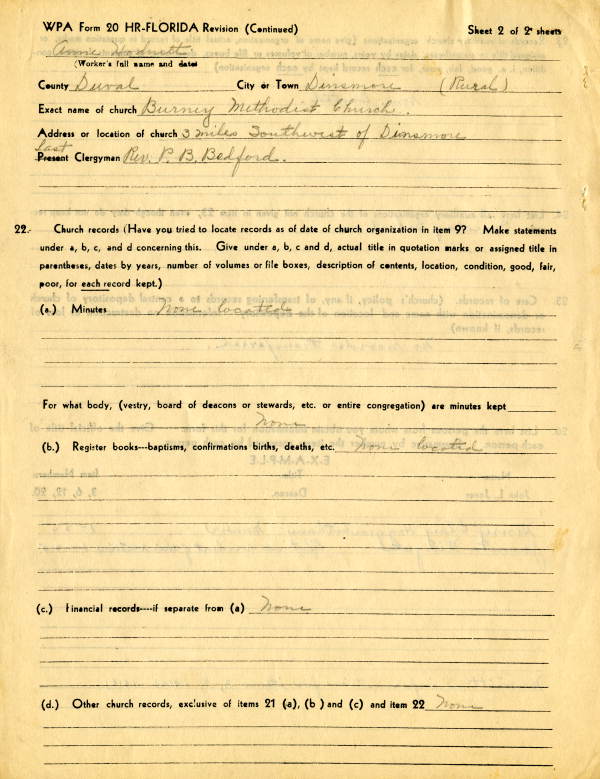 WPA Form 20 HR-FLORIDA Revision (Continued) Sheet 2 of 2 sheets
Annie Hodnett
(Worker's full name and date)
County Duval City or Town Dinsmore (Rural)
Exact name of church Burney Methodist Church.
Address or location of church 3 miles Southwest of Dinsmore
Last
Present Clergyman Rev. P. B. Bedford.
22. Church records (Have you tried to locate records as of date of church organization in item 9? Make statements
under a, b, c, and d concerning this. Give under a, b, c and d, actual title in quotation marks or assigned title in
parentheses, dates by years, number of volumes or file boxes, description of contents, location, condition, good, fair,
poor, for each record kept.)
(a.) Minutes None located
For what body, (vestry, board of deacons or stewards, etc. or entire congregation) are minutes kept
None
(b.) Register books---baptisms, confirmations births, deaths, etc. None located
(c.) Financial records----if separate from (a) None
(d.) Other church records, exclusive of items 21 (a), (b ) and (c) and item 22 None